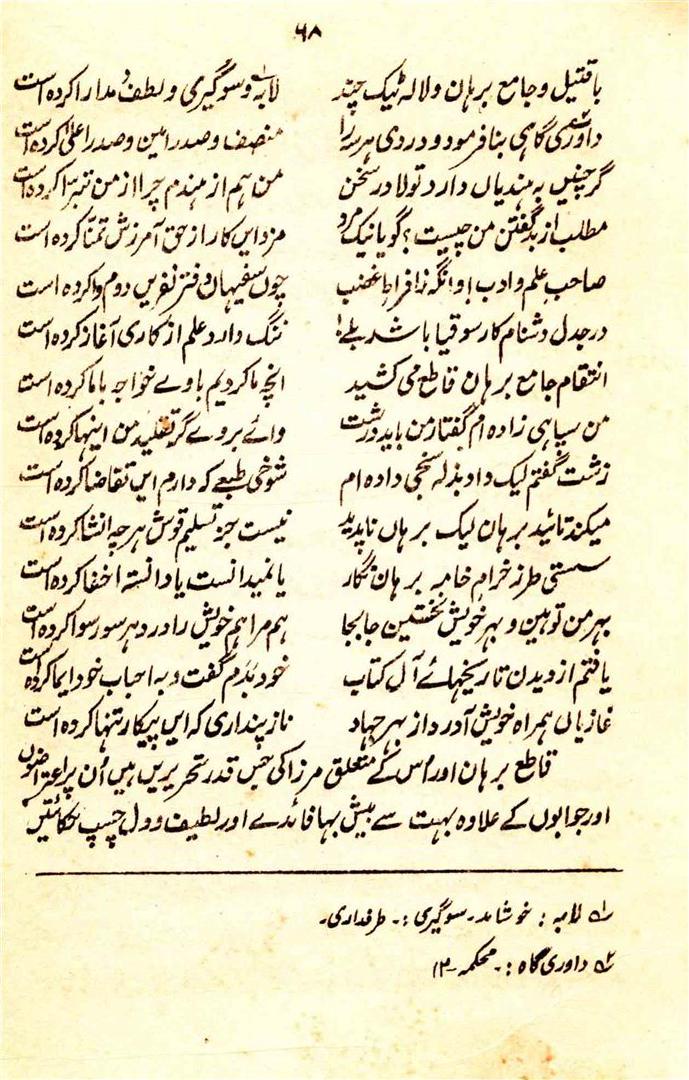 ۶۸
با قتیل و جامع برہان و لالہ ٹیک چند لابہ؂۱ و سوگیری و لطف و مدارا کردہ است
داوری گاہی؂۲ بنا فرمود و در وی ہر سہ را منصف و صدر امین و صدر اعلیٰ کردہ است
گر چنیں بہ ہندیاں دارد تولا در سخن من ہم از ہندم چرا از من تبرا کردہ است
مطلب از بد گفتن من چیست؟ گویا نیک مرد مزد ایں کار از حق آمرزش تمنا کردہ است
صاحب علم و ادب وانگہ ز افراط غضب چوں سفیہاں دفتر نفریں و ذم وا کردہ است
در جدل دشنام کار سوقیاں باشد بلے! ننگ دارد علم از کاری آغا کردہ است
انتقام جامع برہان قاطع می کشید انچہ ما کردیم با وے خواجہ با ما کردہ است
من سپاہی زادہ ام گفتار من باید درشت وائے بر وے گر تقلید من اینہا کردہ است
زشت گفتم لیک داد بذلہ سنجی دادہ ام شوخی طبعے کہ دارم ایں تقاضا کردہ است
میکند تائید برہان لیک برہاں ناپدید نیست جز تسلیم قوش ہر چہ انشا کردہ است
سستی طرز خرام خامہ برہان نگار یا نمیدانست یا دانستہ اخفا کردہ است
بہر من توہین و بہر خویش تحسین جا بجا ہم مرا ہم خویش را در دہر رسوا کردہ است
یافتم از دیدن تاریخہائے آں کتاب خود بدم گفت و بہ احباب خود ایما کردہ است
غازیاں ہمراہ خویش آدرد از بہر جہاد نا ز پنداری کہ ایں پیکار تنہا کردہ است
قاطع برہان اور اُس کے متعلق مرزا کی جس قدر تحریریں ہیں اُن پر اعتراضوں
اور جوابوں کے علاوہ بہت سے بیش بہا فائدے اور لطیف و دل چسپ حکائتیں
؂۱ لابہ : خوشامد۔ سوگیری :۔ طرفداری۔
؂۲ داوری گاہ :۔ محکمہ ۔۱۲